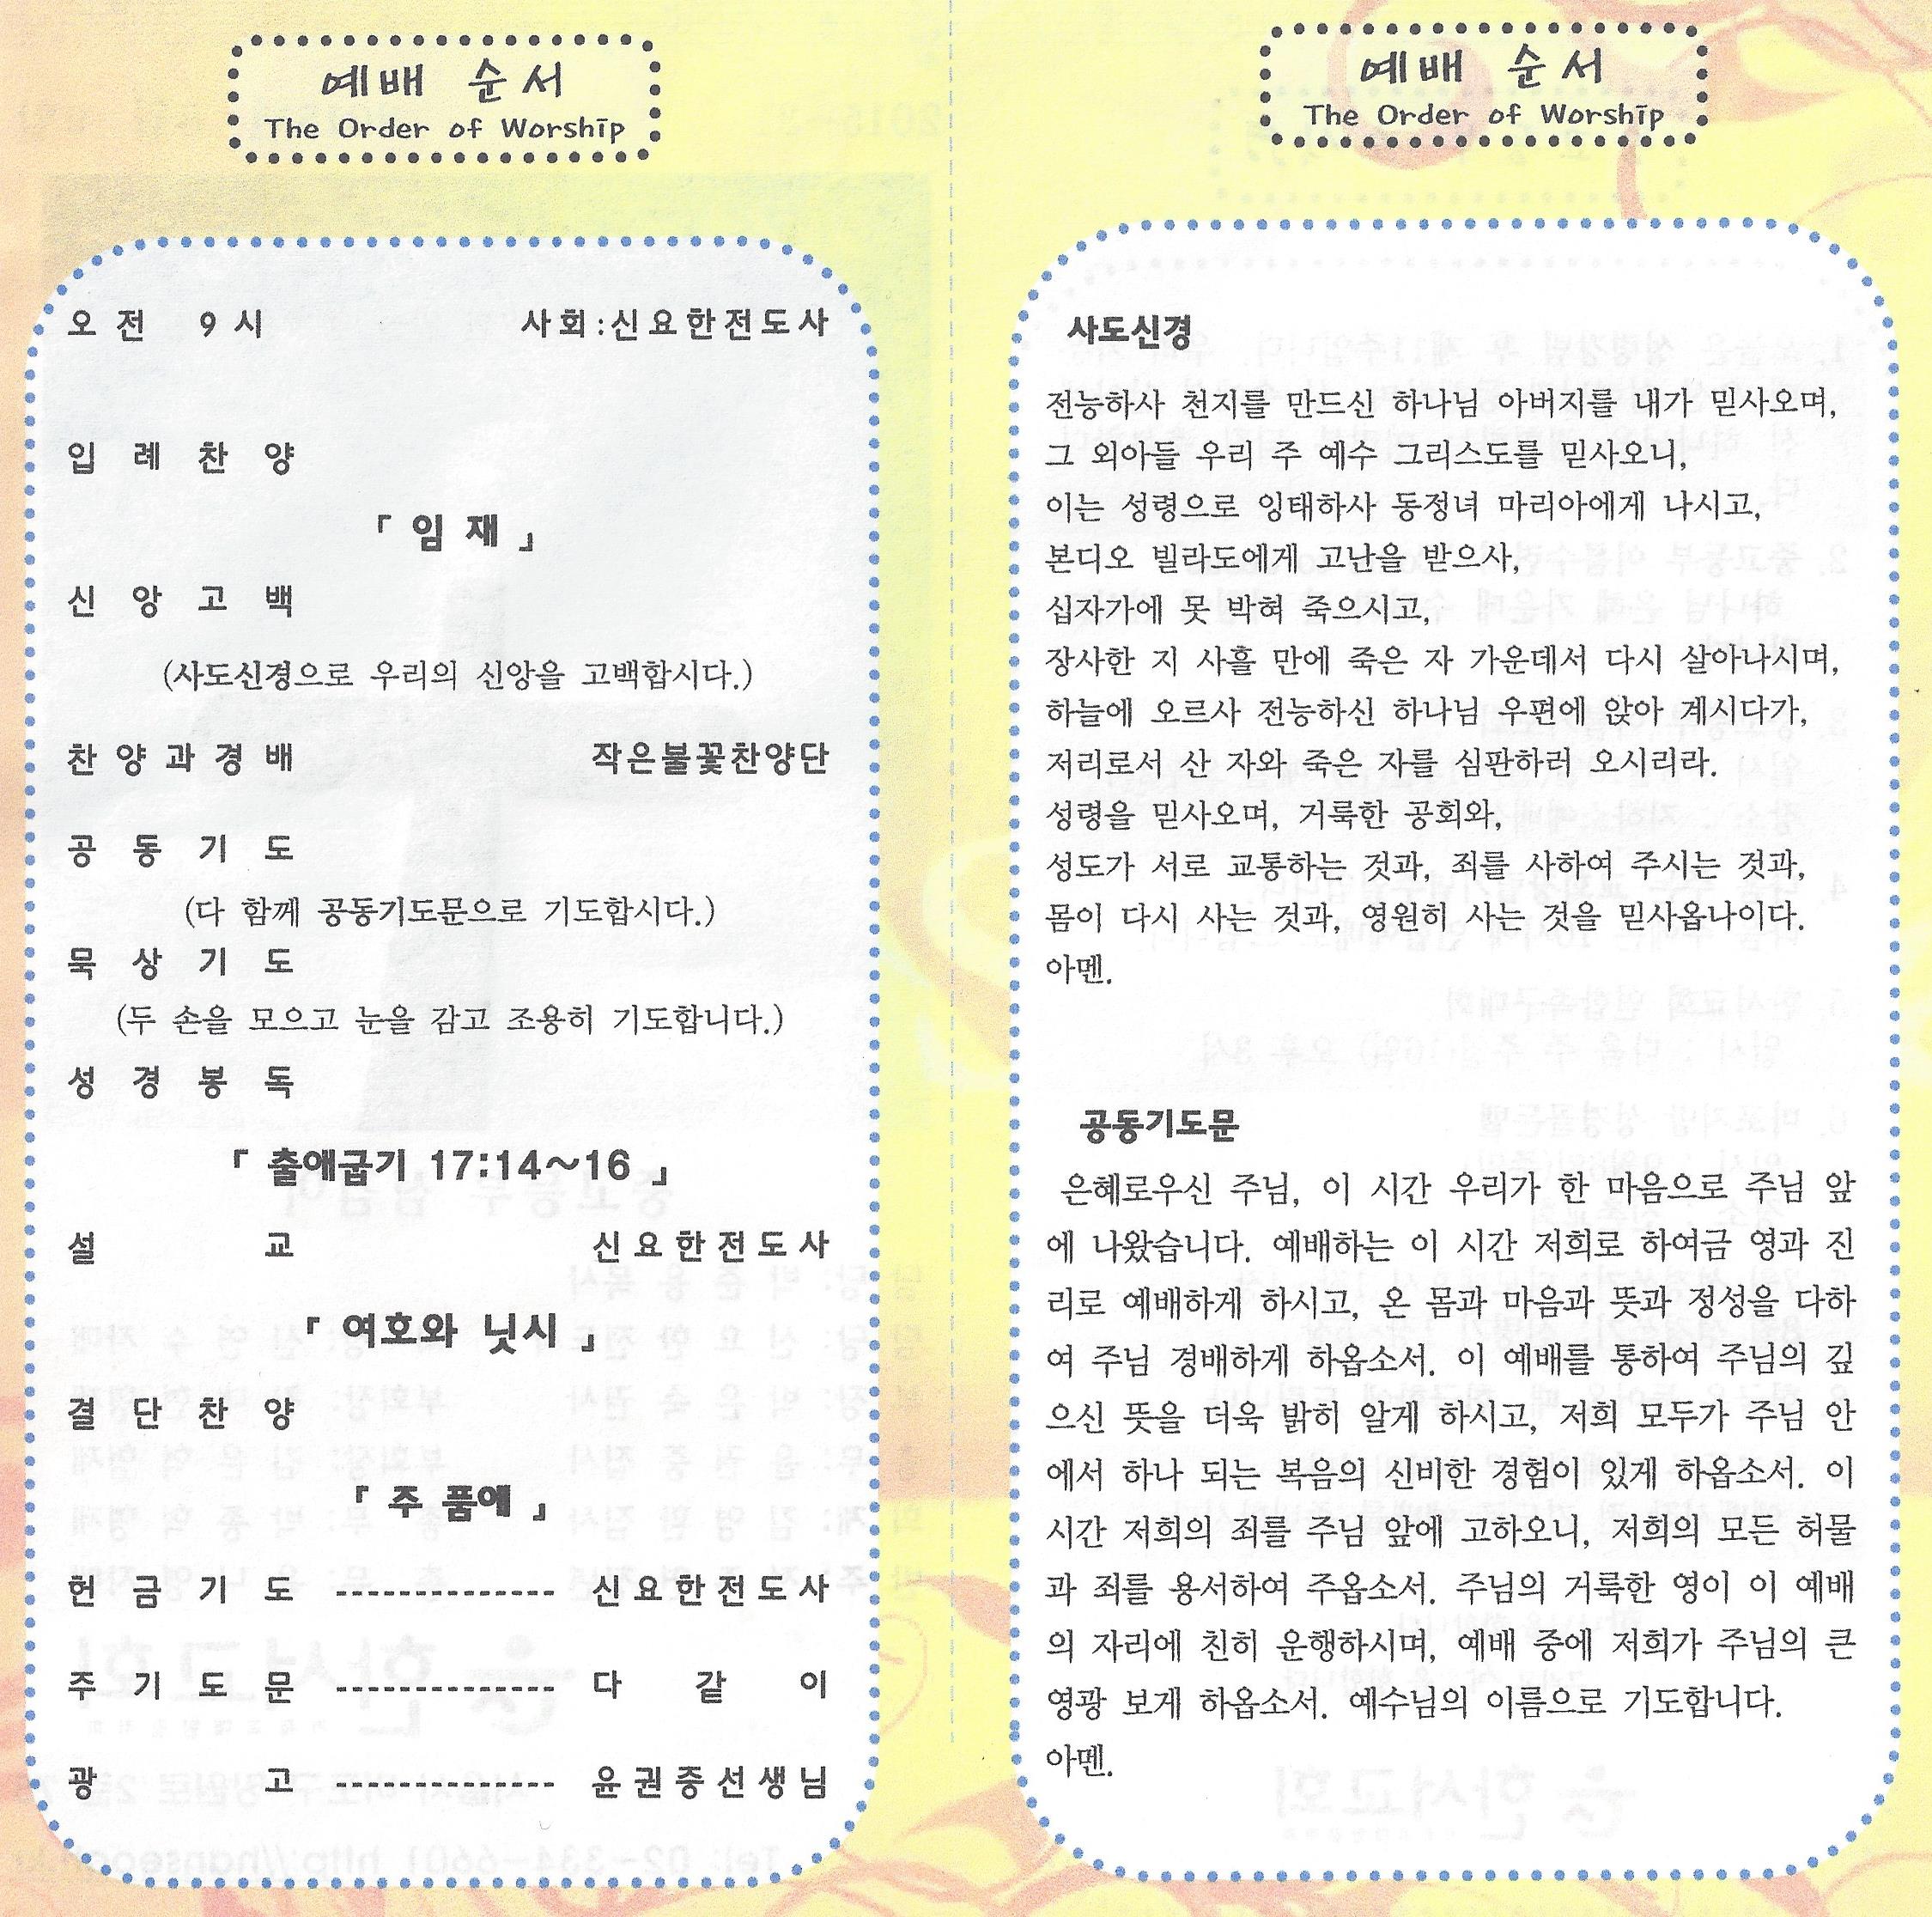 예배 순서
The Order of Worship
오전 9시 사회:신요한전도사
입례찬양
「 임 재 」
신앙고백
(사도신경으로 우리의 신앙을 고백합시다.)
찬양과경배 작은불꽃찬양단
공동기도
(다 함께 공동기도문으로 기도합시다.)
묵상기도
(두 손을 모으고 눈을 감고 조용히 기도합니다.)
성경봉독
「 출애굽기 17:14~16 」
설교 신요한전도사
「 여호와 닛시 」
결단찬양
「 주 품에 」
헌금기도 -------------- 신요한전도사
주기도문 -------------- 다같이
광고 -------------- 윤권중선생님
예배 순서
The Order of Worship
사도신경
전능하사 천지를 만드신 하나님 아버지를 내가 믿사오며,
그 외아들 우리 주 예수 그리스도를 믿사오니,
이는 성령으로 잉태하사 동정녀 마리아에게 나시고,
본디오 빌라도에게 고난을 받으사,
십자가에 못 박혀 죽으시고,
장사한 지 사흘 만에 죽은 자 가운데서 다시 살아나시며,
하늘에 오르사 전능하신 하나님 우편에 앉아 계시다가,
저리로서 산 자와 죽은 자를 심판하러 오시리라.
성령을 믿사오며, 거룩한 공회와,
성도가 서로 교통하는 것과, 죄를 사하여 주시는 것과,
몸이 다시 사는 것과, 영원히 사는 것을 믿사옵나이다.
아멘.
공동기도문
은혜로우신 주님, 이 시간 우리가 한 마음으로 주님 앞
에 나왔습니다. 예배하는 이 시간 저희로 하여금 영과 진
리로 예배하게 하시고, 온 몸과 마음과 뜻과 정성을 다하
여 주님 경배하게 하옵소서. 이 예배를 통하여 주님의 깊
으신 뜻을 더욱 밝히 알게 하시고, 저희 모두가 주님 안
에서 하나 되는 복음의 신비한 경험이 있게 하옵소서. 이
시간 저희의 죄를 주님 앞에 고하오니, 저희의 모든 허물
과 죄를 용서하여 주옵소서. 주님의 거룩한 영이 이 예배
의 자리에 친히 운행하시며, 예배 중에 저희가 주님의 큰
영광 보게 하옵소서. 예수님의 이름으로 기도합니다.
아멘.